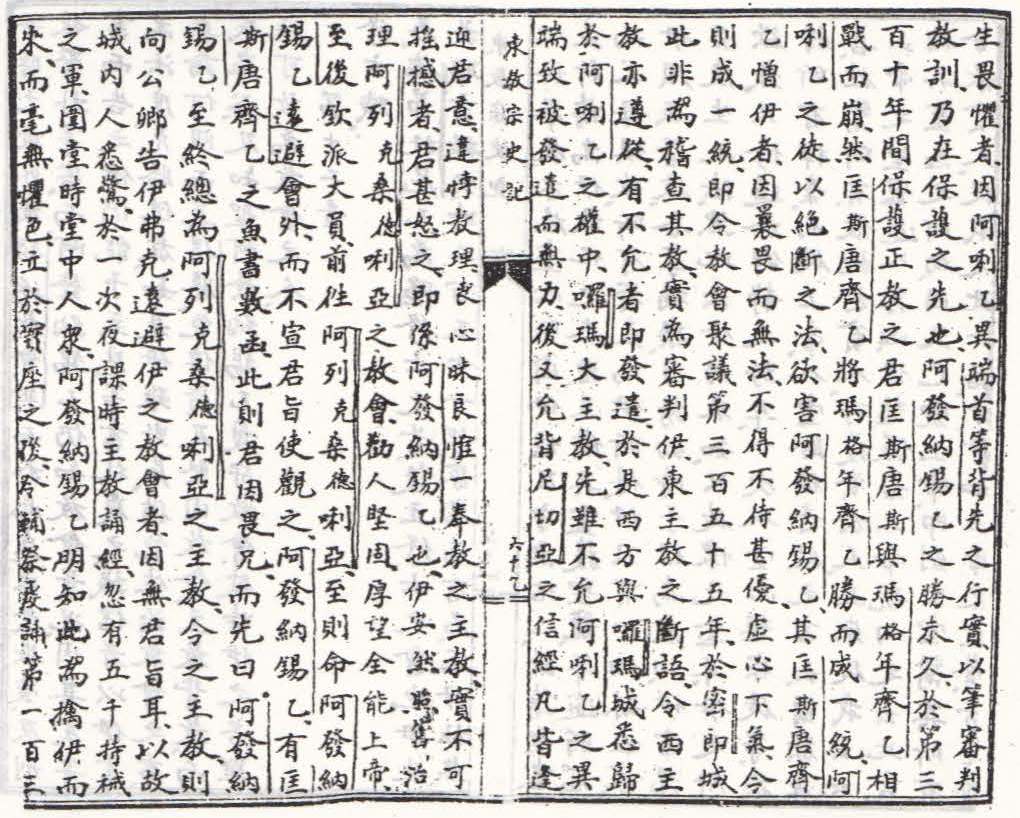 生畏懼者、因阿唎乙異端首等背先之行實、以筆審判
教訓、乃在保護之先也、阿發納錫乙之勝未久、於第三
百十年間保護正教之君匡斯唐斯與瑪格年齊乙相
戰而崩、然匡斯唐齊乙將瑪格年齊乙勝而成一統、阿
唎乙之徒以絕斷之法、欲害阿發納錫乙、其匡斯唐齊
乙憎伊者、因曩畏而無法、不得不待甚優、虛心下氣、今
則成一統、即令教會聚議第三百五十五年、於密即城
此非為稽查其教、實為審判伊、東主教之斷語、令西主
教亦遵從、有不允者即發遣、於是西方與囉瑪城悉歸
於阿唎乙之權中、囉瑪大主教、先雖不允阿唎乙之異
端致被發遣而無力、後又允背尼切亞之信經凡皆逢
東教宗史記
六十七
迎君意、違悖教理、喪心昧良、惟一奉教之主教、實不可
搖撼者、君甚怒之、即係阿發納錫乙也、伊安然照舊治
理阿列克桑德唎亞之教會、勸人堅固、厚望全能上帝、
至後欽派大員、前往阿列克桑德唎亞、至則命阿發納
錫乙遠避會外、而不宣君旨使觀之、阿發納錫乙、有匡
斯唐齊乙之魚書數函、此則君因畏兄、而先曰阿發納
錫乙至終總為阿列克桑德唎亞之主教、令之主教、則
向公鄉告伊弗克遠避伊之教會者、因無君旨耳、以故
城內人悉驚、於一次夜課時主教誦經、忽有五千持械
之軍、圍堂時堂中人眾、阿發納錫乙明知此為擒伊而
來、而毫無懼色、立於寶座之後、令輔祭愛誦第一百三